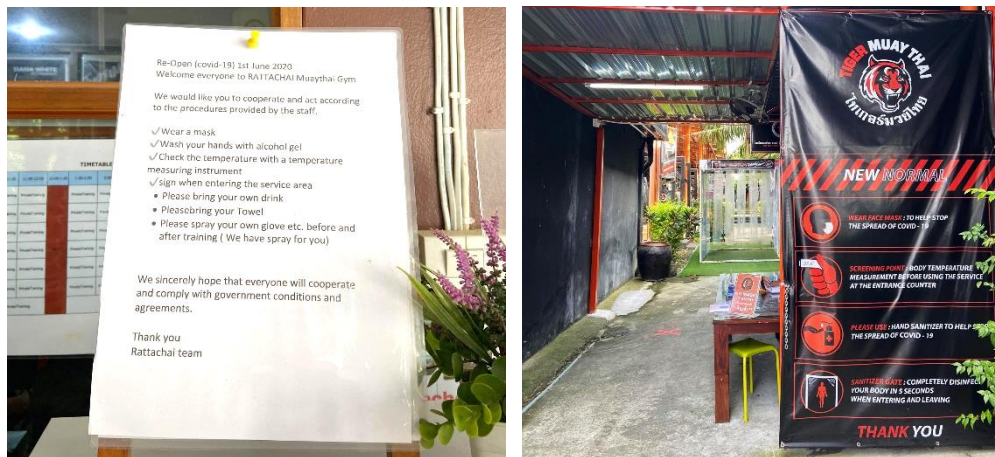 DANA WHITE
TIMETABLE
Re-Open (covid-19) 1st June 2020
Welcome everyone to RATTACHAI Muaythai Gym
We would like you to cooperate and act according
to the procedures provided by the staff.
✓Wear a mask
✓Wash your hands with alcohol gel
✓Check the temperature with a temperature
measuring instrument
✓sign when entering the service area
• Please bring your own drink
• Pleasebring your Towel
• Please spray your own glove etc. before and
after training ( We have spray for you)
We sincerely hope that everyone will cooperate
and comply with government conditions and
agreements.
Thank you
Rattachai team
TIGER MUAY THAI
ไทเกอร์มวยไทย
NEW NORMAL
WEAR FACE MASK : TO HELP STOP
THE SPREAD OF COVID - 19
SCREENING POINT : BODY TEMPERATURE
MEASUREMENT BEFORE USING THE SERVICE
AT THE ENTRANCE COUNTER
PLEASE USE : HAND SANITIZER TO HELP
THE SPREAD OF COVID - 19
SANITIZER GATE : COMPLETELY DISINFEC
YOUR BODY IN 5 SECONDS
WHEN ENTERING AND LEAVING
THANK YOU